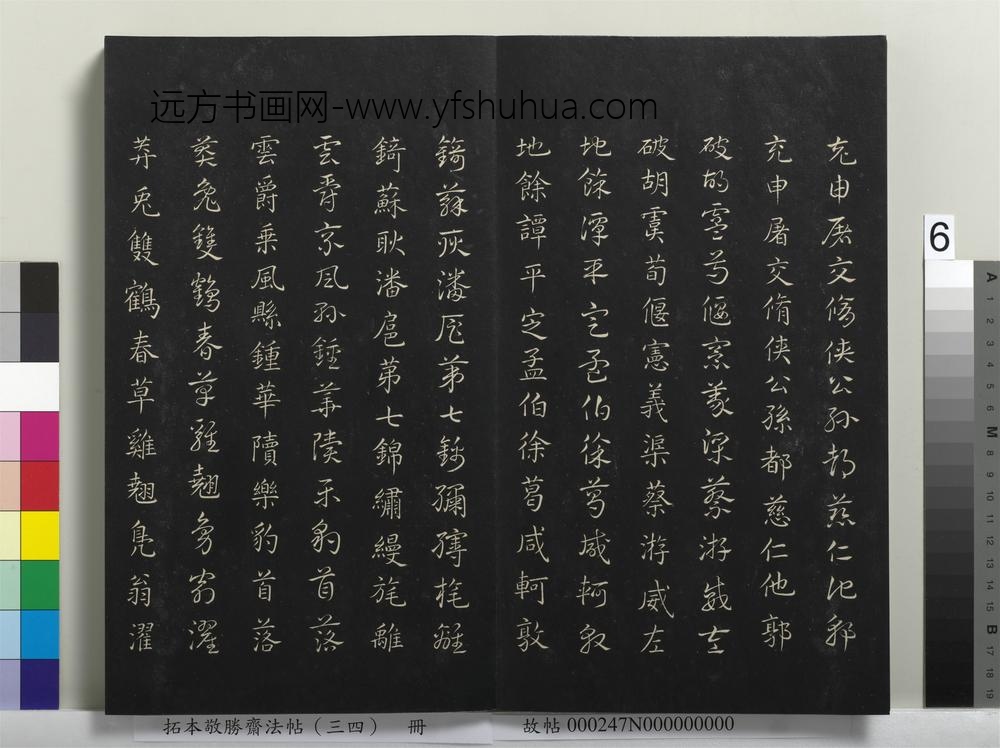 远方书画网-www.yfshuhua.com
充申屠交脩俠公孫都慈仁他郭
充申屠交脩俠公孫都慈仁他郭
破胡虞荀偃憲義渠蔡游威左
破胡虞荀偃憲義渠蔡游威左
地餘譚平定孟伯徐葛咸軻敦
地餘譚平定孟伯徐葛咸軻敦
錡蘇耿潘扈第七錦繡縵旄離
錡蘇耿潘扈第七錦繡縵旄離
雲爵乘風孫鍾華隤樂豹首落
雲爵乘風縣鍾華隤樂豹首落
莽兔雙鶴春草雞翹鳧翁濯
莽兔雙鶴春草雞翹鳧翁濯
拓本敬勝齋法帖（三四） 冊
故帖 000247N000000000
6
A 1 2 3 4 5 6 M 8 9 10 11 12 13 14 15 B 17 18 19